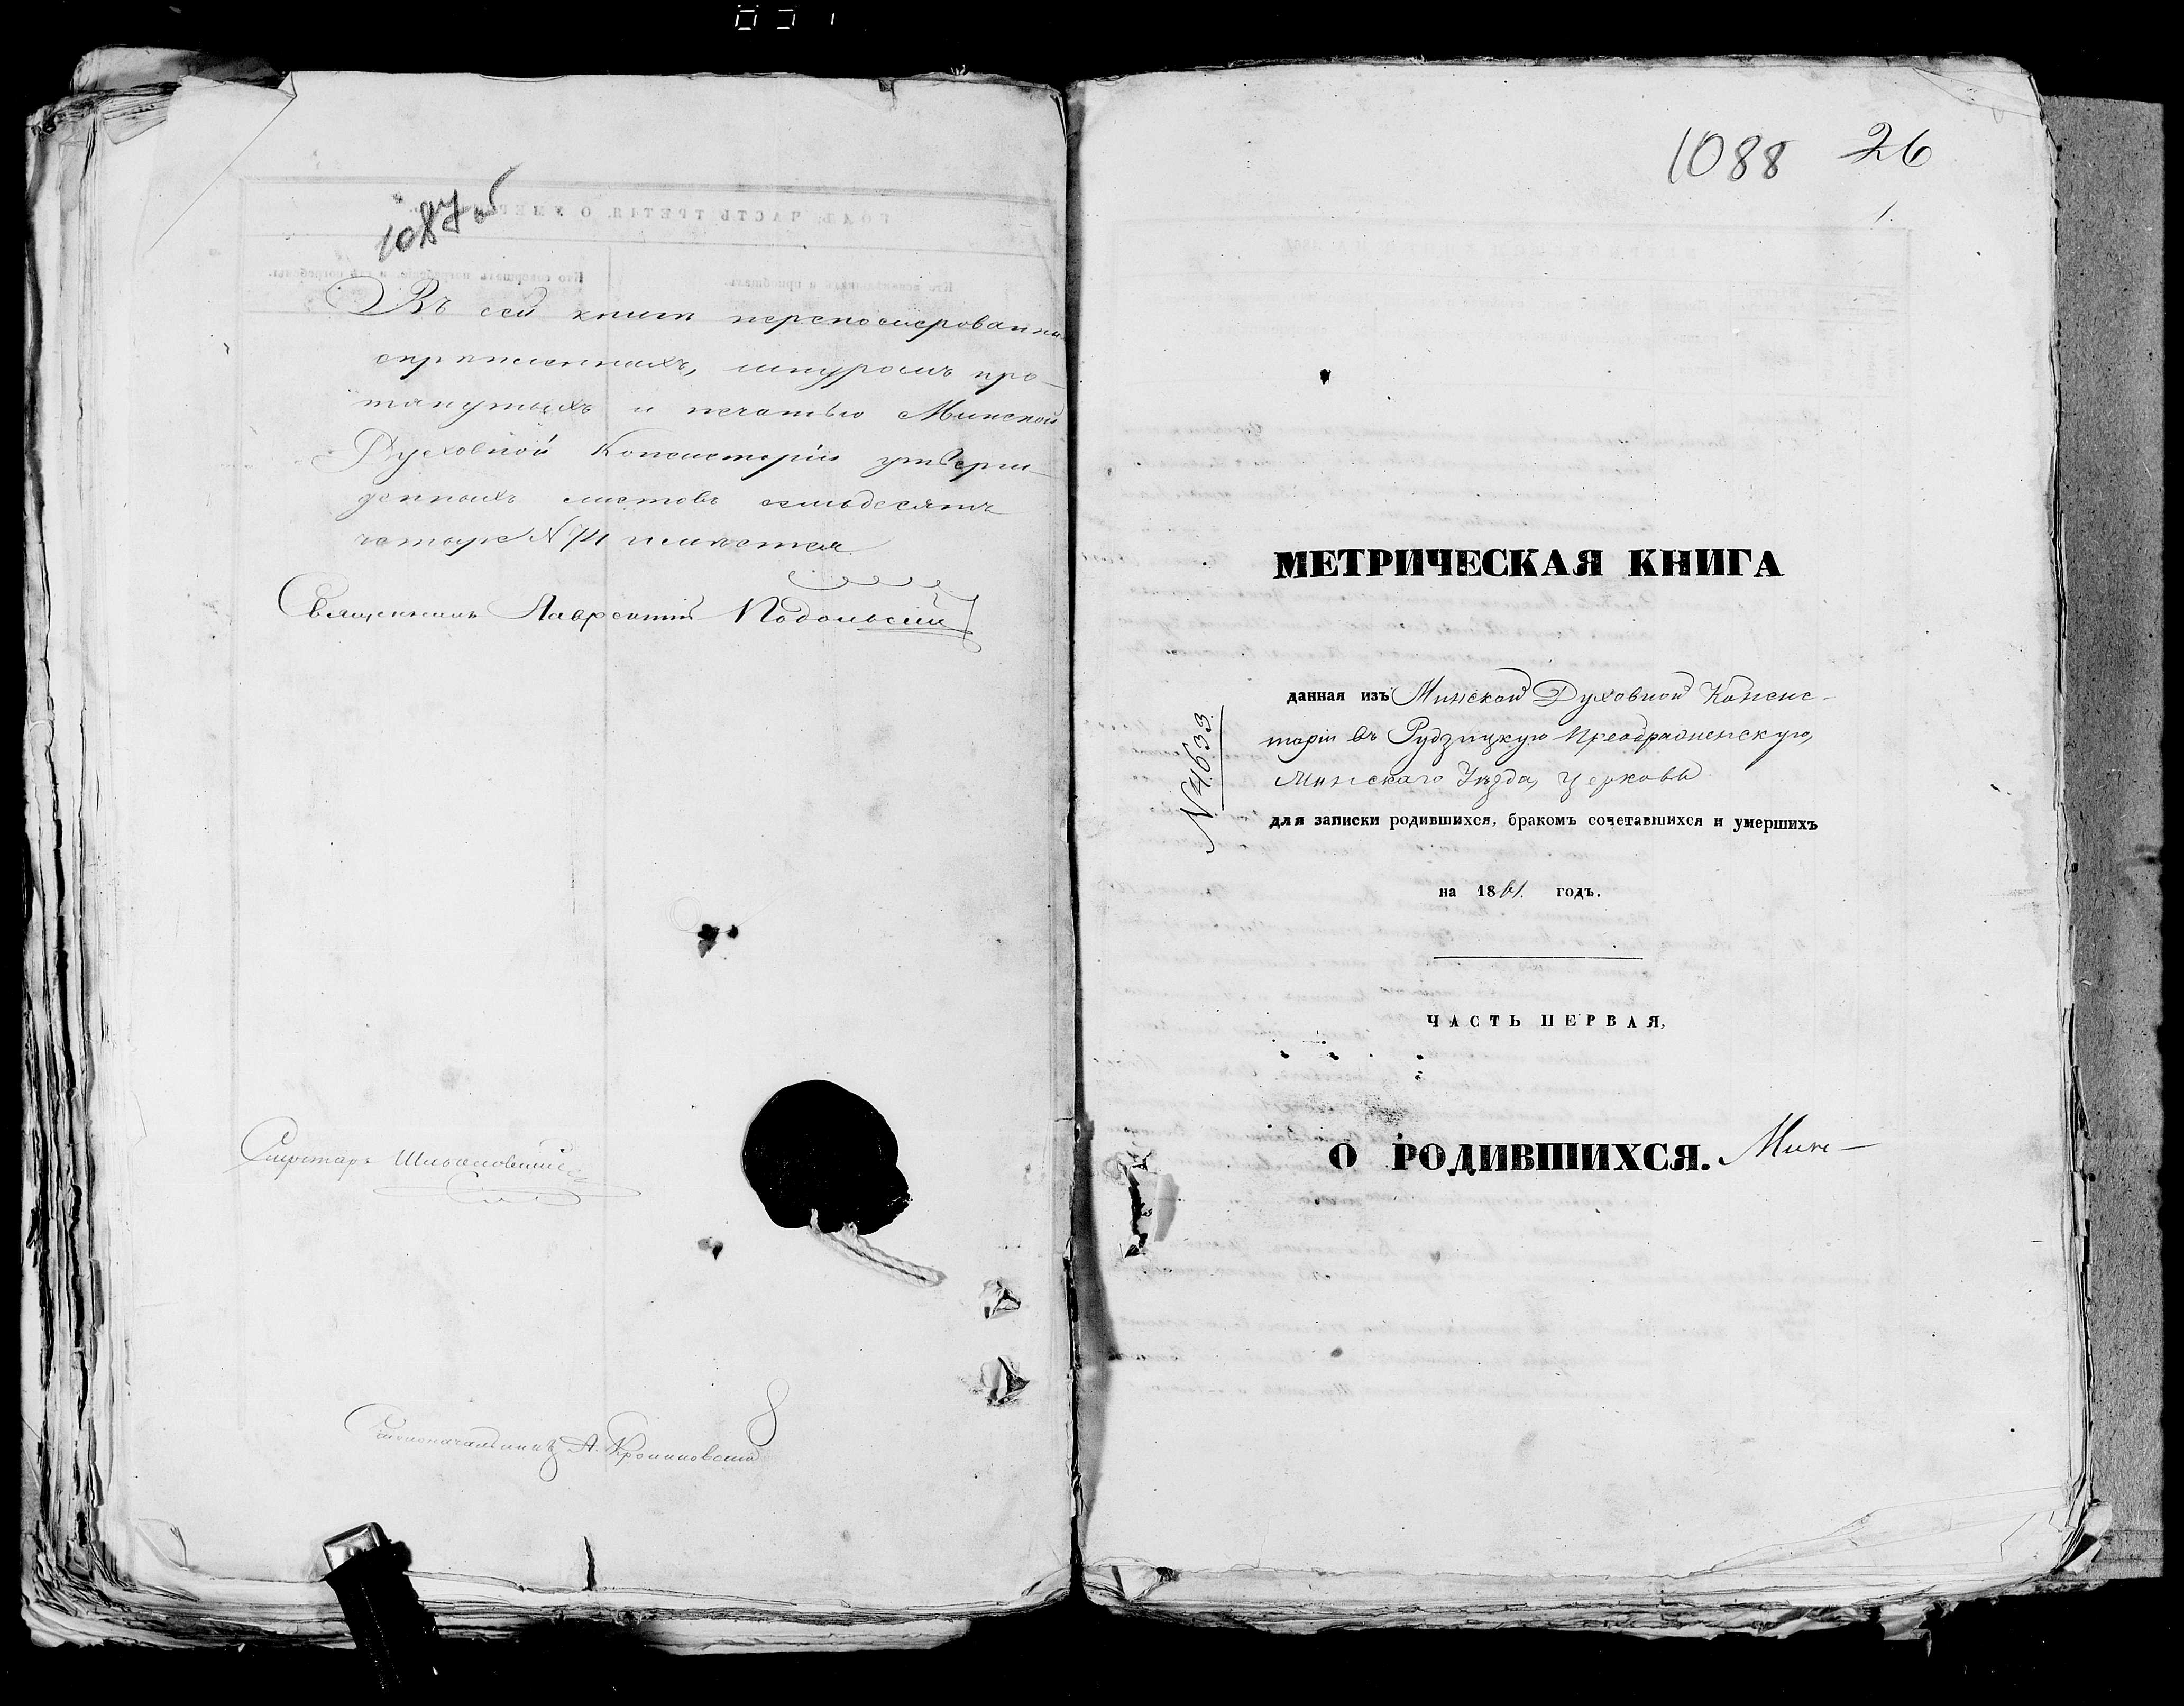 1087 об
Въ сей книгѣ перенумерованныхъ
скрѣпленныхъ, шнуромъ про-
тянутыхъ и печатью Минской
Духовной Консисторіи утверж-
денныхъ листовъ семьдесятъ
четыре N 74 имѣется
Священникъ Лаврентій Подольскій
Секретарь
Столоначальникъ А.
1088 26
1.
МЕТРИЧЕСКАЯ КНИГА
данная изъ Минской Духовной Консис-
торіи въ Рудзицкую Преображенскую,
Минскаго Уѣзда, церковь
N 4633
для записки родившихся, бракомъ сочетавшихся и умершихъ
на 1861. годъ.
ЧАСТЬ ПЕРВАЯ,
О РОДИВШИХСЯ. Мин-